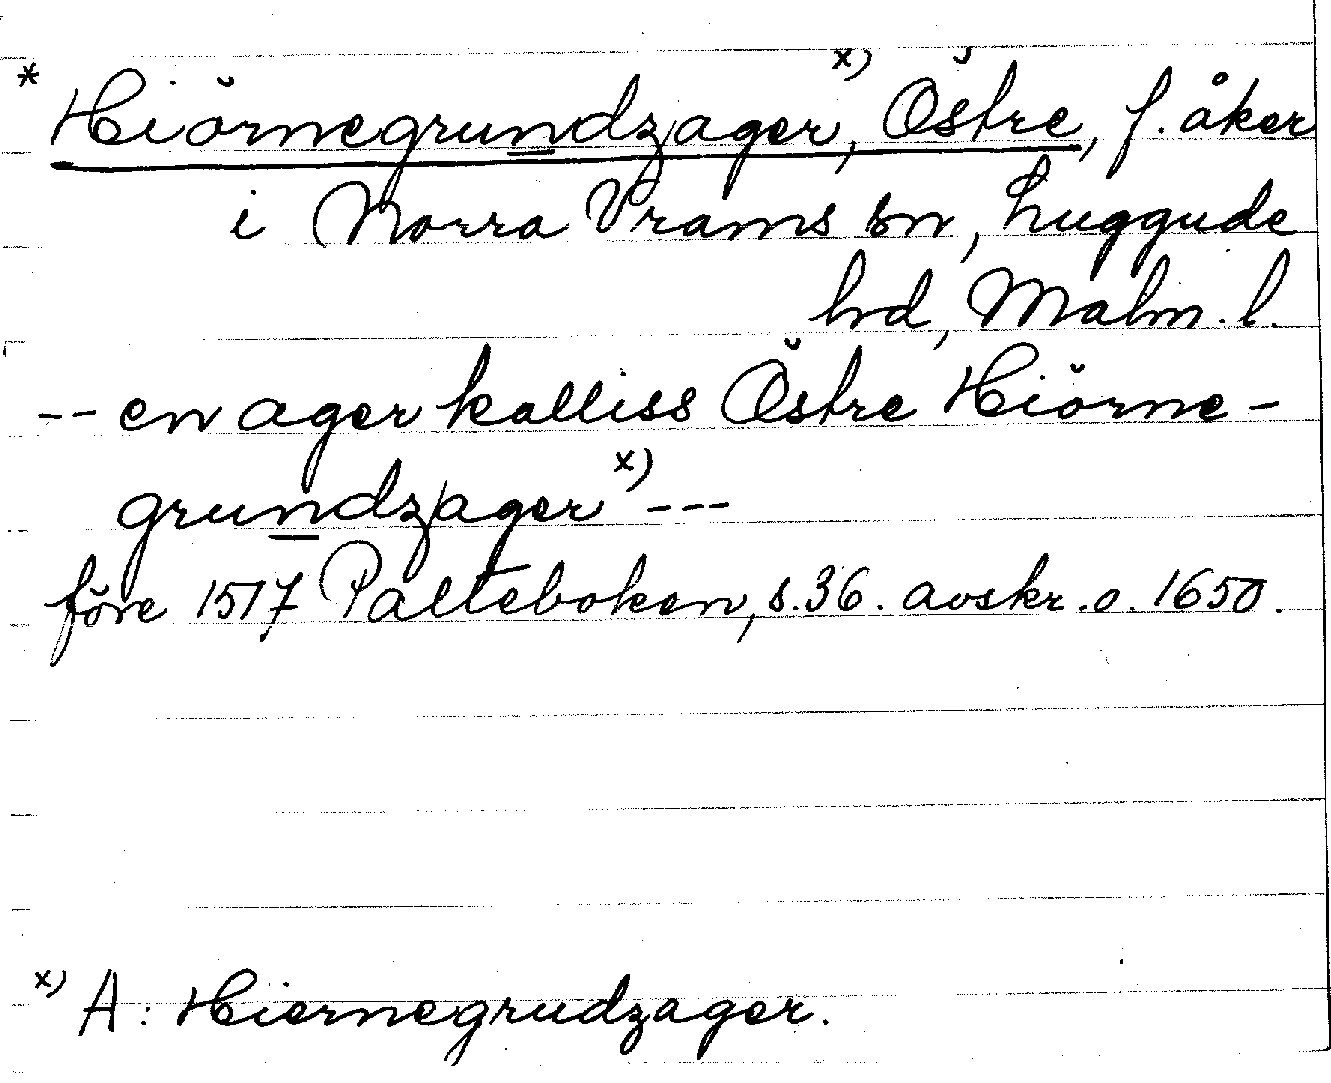 * Hiörnegrundzager x), Östre, f. åker
i Norra Vrams sn, Luggude
hd, Malm. l.
-- en ager kalliss Östre Hiörne-
grundzager x) ---
före 1517 Palteboken, s. 36. avskr. o. 1650.
x) A: Hiernegrudzager.